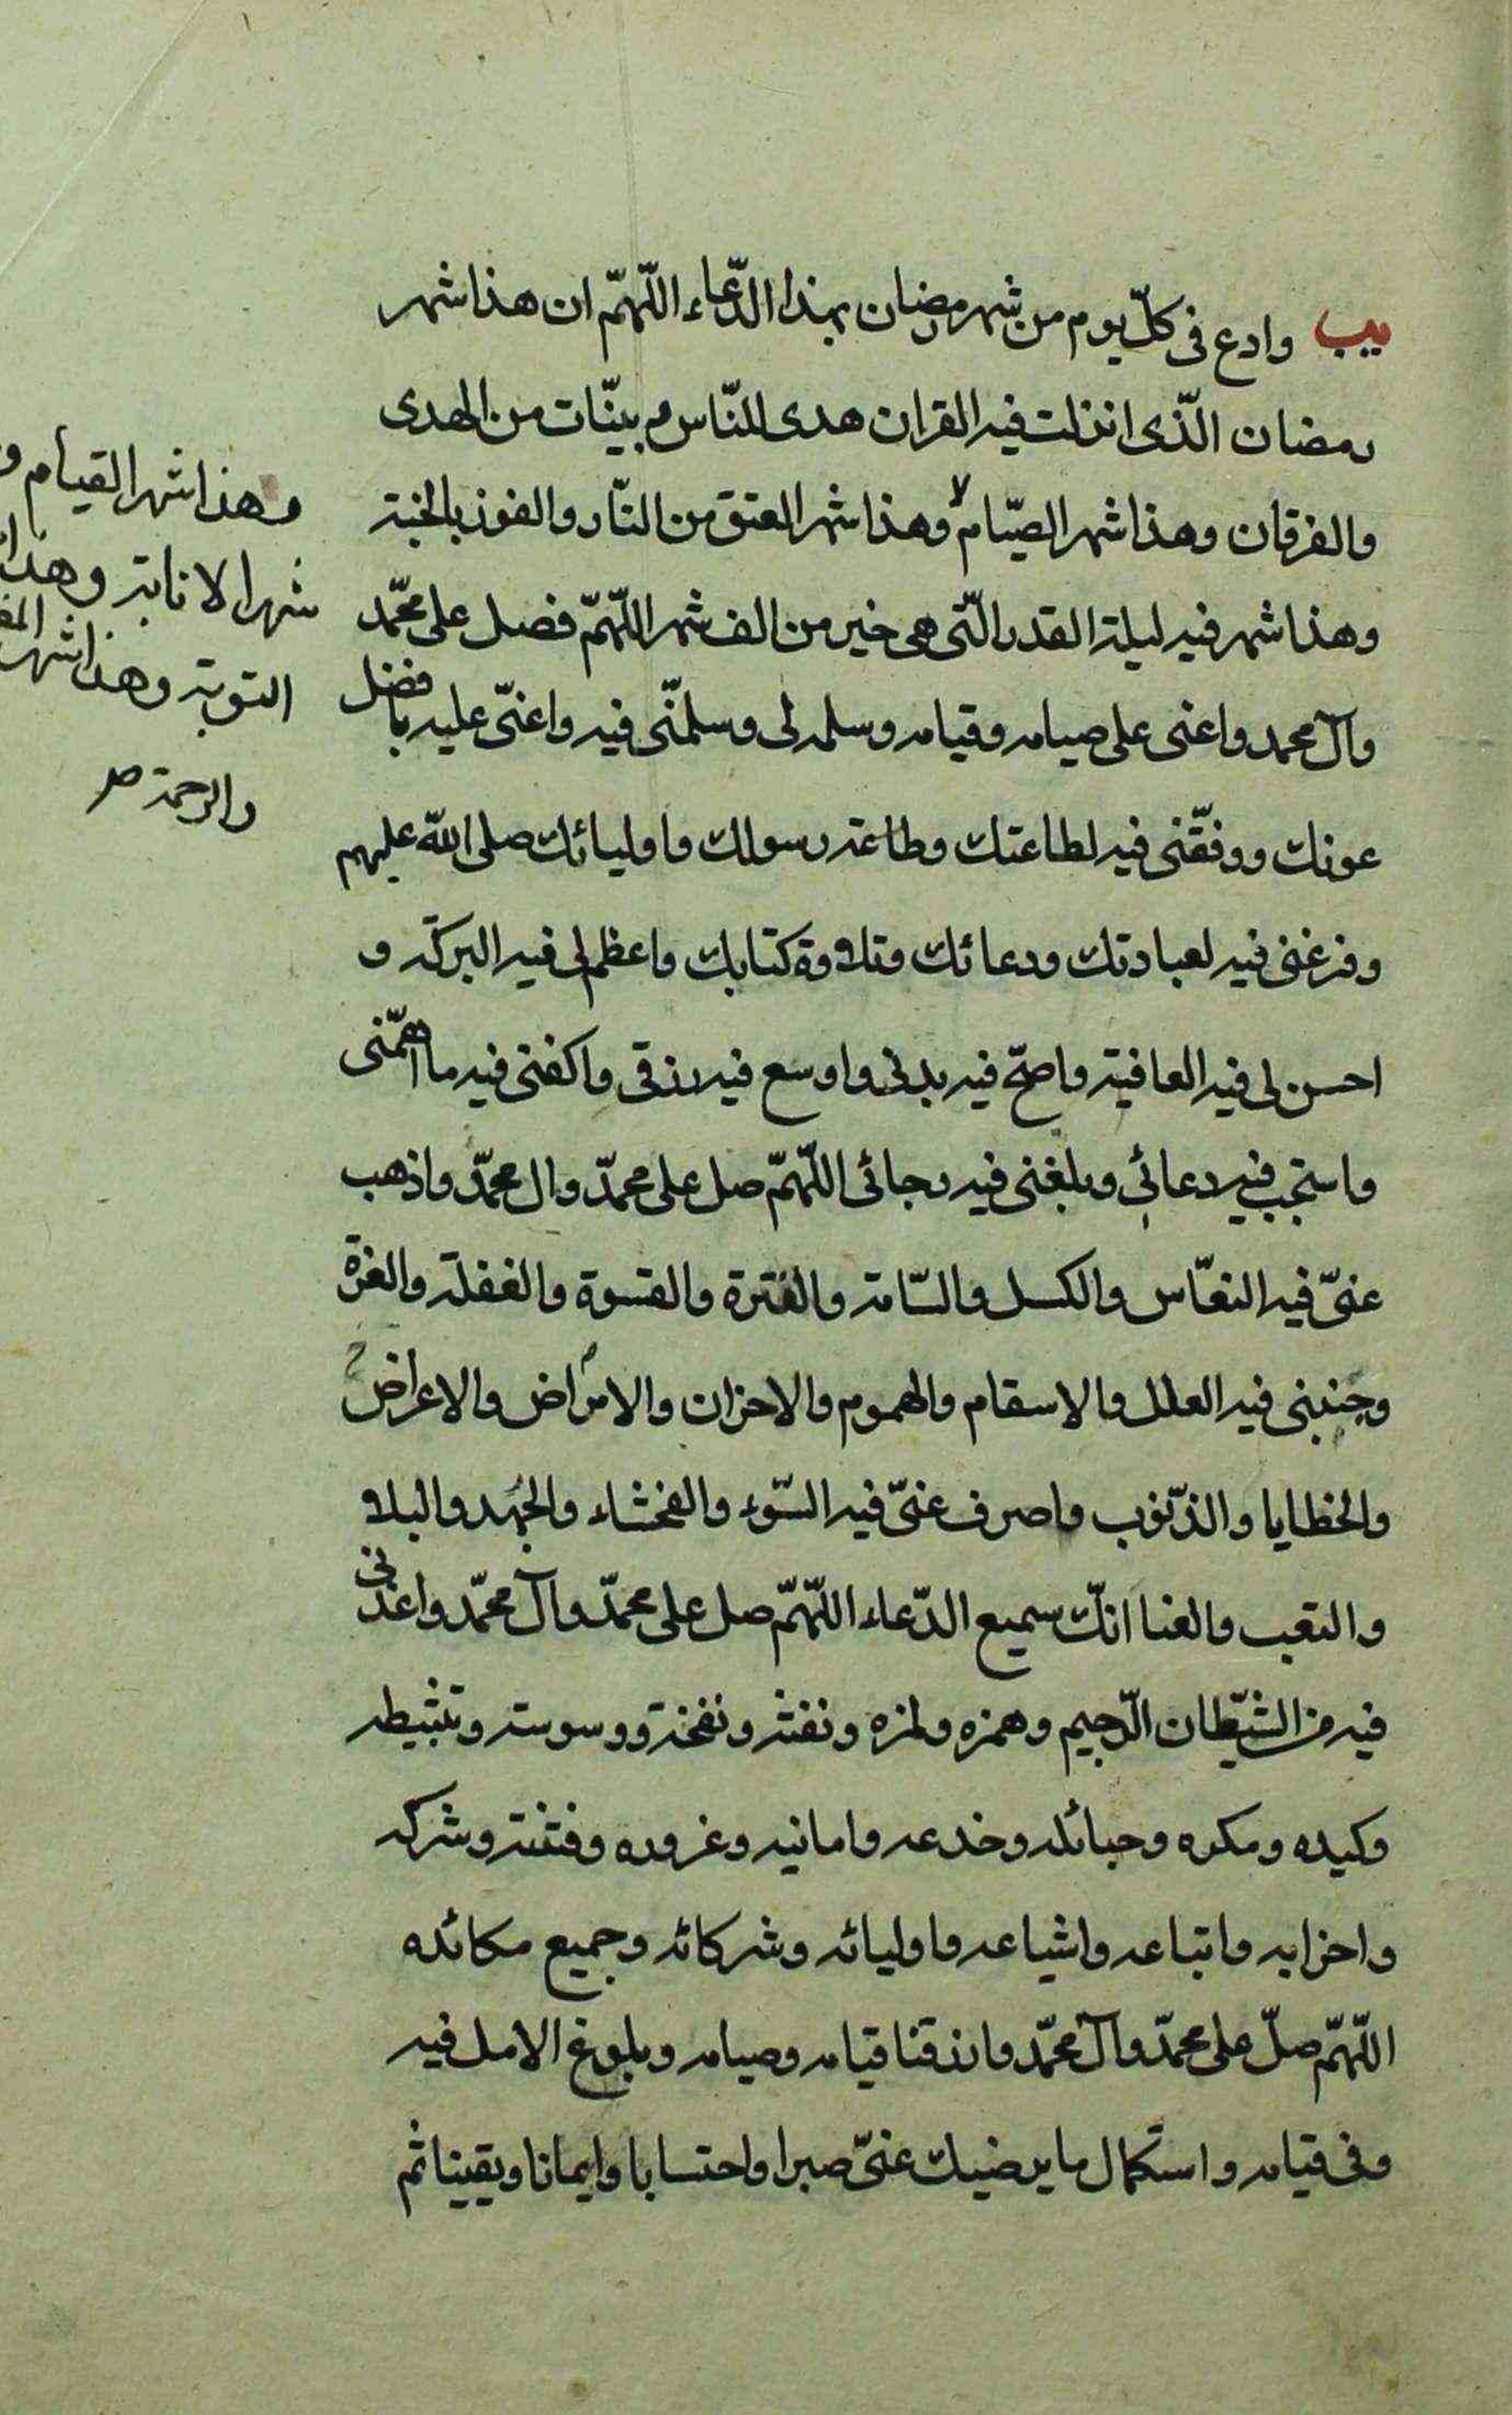 يب وادع فى كلّ يوم من شهر رمضان بهذا الدّعاء اللّهمّ ان هذا شهر
رمضان الّذى انزلت فيه القران هدى للنّاس و بينّات من الهدى
والفرقان وهذا شهر الصيّام وهذا شهر العتق من النّار والفوز بالجنة
وهذا شهر فيه ليلة القدر الّتى هى خير من الف شهر اللّهمّ فصل على محمّد
وآل محمد واعنى على صيامه وقيامه وسلمه لى وسلمنّى فيه واعنىّ عليه بافضل
عونك ووفقّنى فيه لطاعتك وطاعة رسولك واوليائك صلى الله عليهم
وفرغنى فيه لعبادتك ودعائك وتلاوة كتابك واعظم لى فيه البركة و
احسن لى فيه العافية واصحّ فيه بدنى واوسع فيه رزقى واكفنى فيه ما اهمّنى
واستجب فيه دعائى وبلغنى فيه رجائى اللّهمّ صل على محمدّ وال محمدّ واذهب
عنىّ فيه النعّاس والكسل والسّامة والفترة والقسوة والغفلة والغرة
وجنبنى فيه العلل والاسقام والهموم والاحزان والامراض والاعراض
والخطايا والذّنوب واصرف عنىّ فيه السّوء والفحشاء والجهد والبلاء
والتعب والعنا انكّ سميع الدّعاء اللّهمّ صل على محمدّ وآل محمّد واعذنى
فيه من الشيّطان الرّجيم وهمزه ولمزه ونفثه ونفخة ووسوسته وتثبيطه
وكيده ومكره وحبائله وخدعه وامانيه وغروره وفتنته وشركه
واحزابه واتباعه واشياعه واوليائه وشركائه وجميع مكائده
اللّهمّ صلّ على محمدّ وآل محمّد وارزقنا قيامه وصيامه وبلوغ الامل فيه
وفى قيامه واستكمال ما يرضيك عنىّ صبرا واحتسابا وايمانا ويقينا ثم
وهذا شهر القيام و
شهر الانابة وهذا
التوبة وهذا شهر
والرحمة صح